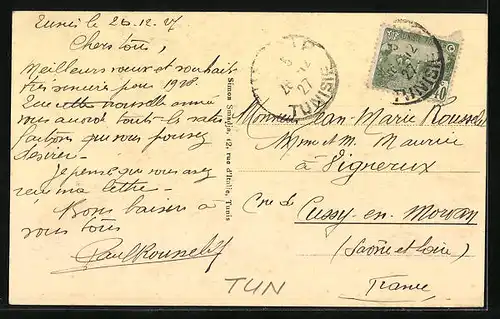 Tunis le 26.12.27
Chers tous,
Meilleurs voeux et souhaits
très sincères pour 1928.
Que cette nouvelle année
vous accorde toute la satis
faction que vous pouvez
désirer.
Je pense que vous avez
reçu ma lettre.
Bons baisers à
vous tous
Paul Rousselet
Simon Smadja, 12, rue d'Italie, Tunis
TUNISIE
27
TUNISIE
27
Monsieur Jean-Marie Rousselet
chez M. Maurice
à Vigneux
Cne de Cussy-en-Morvan
(Saône et Loire)
France
TUN